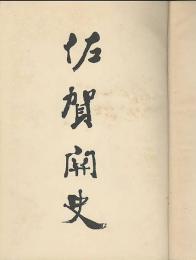 佐賀開史